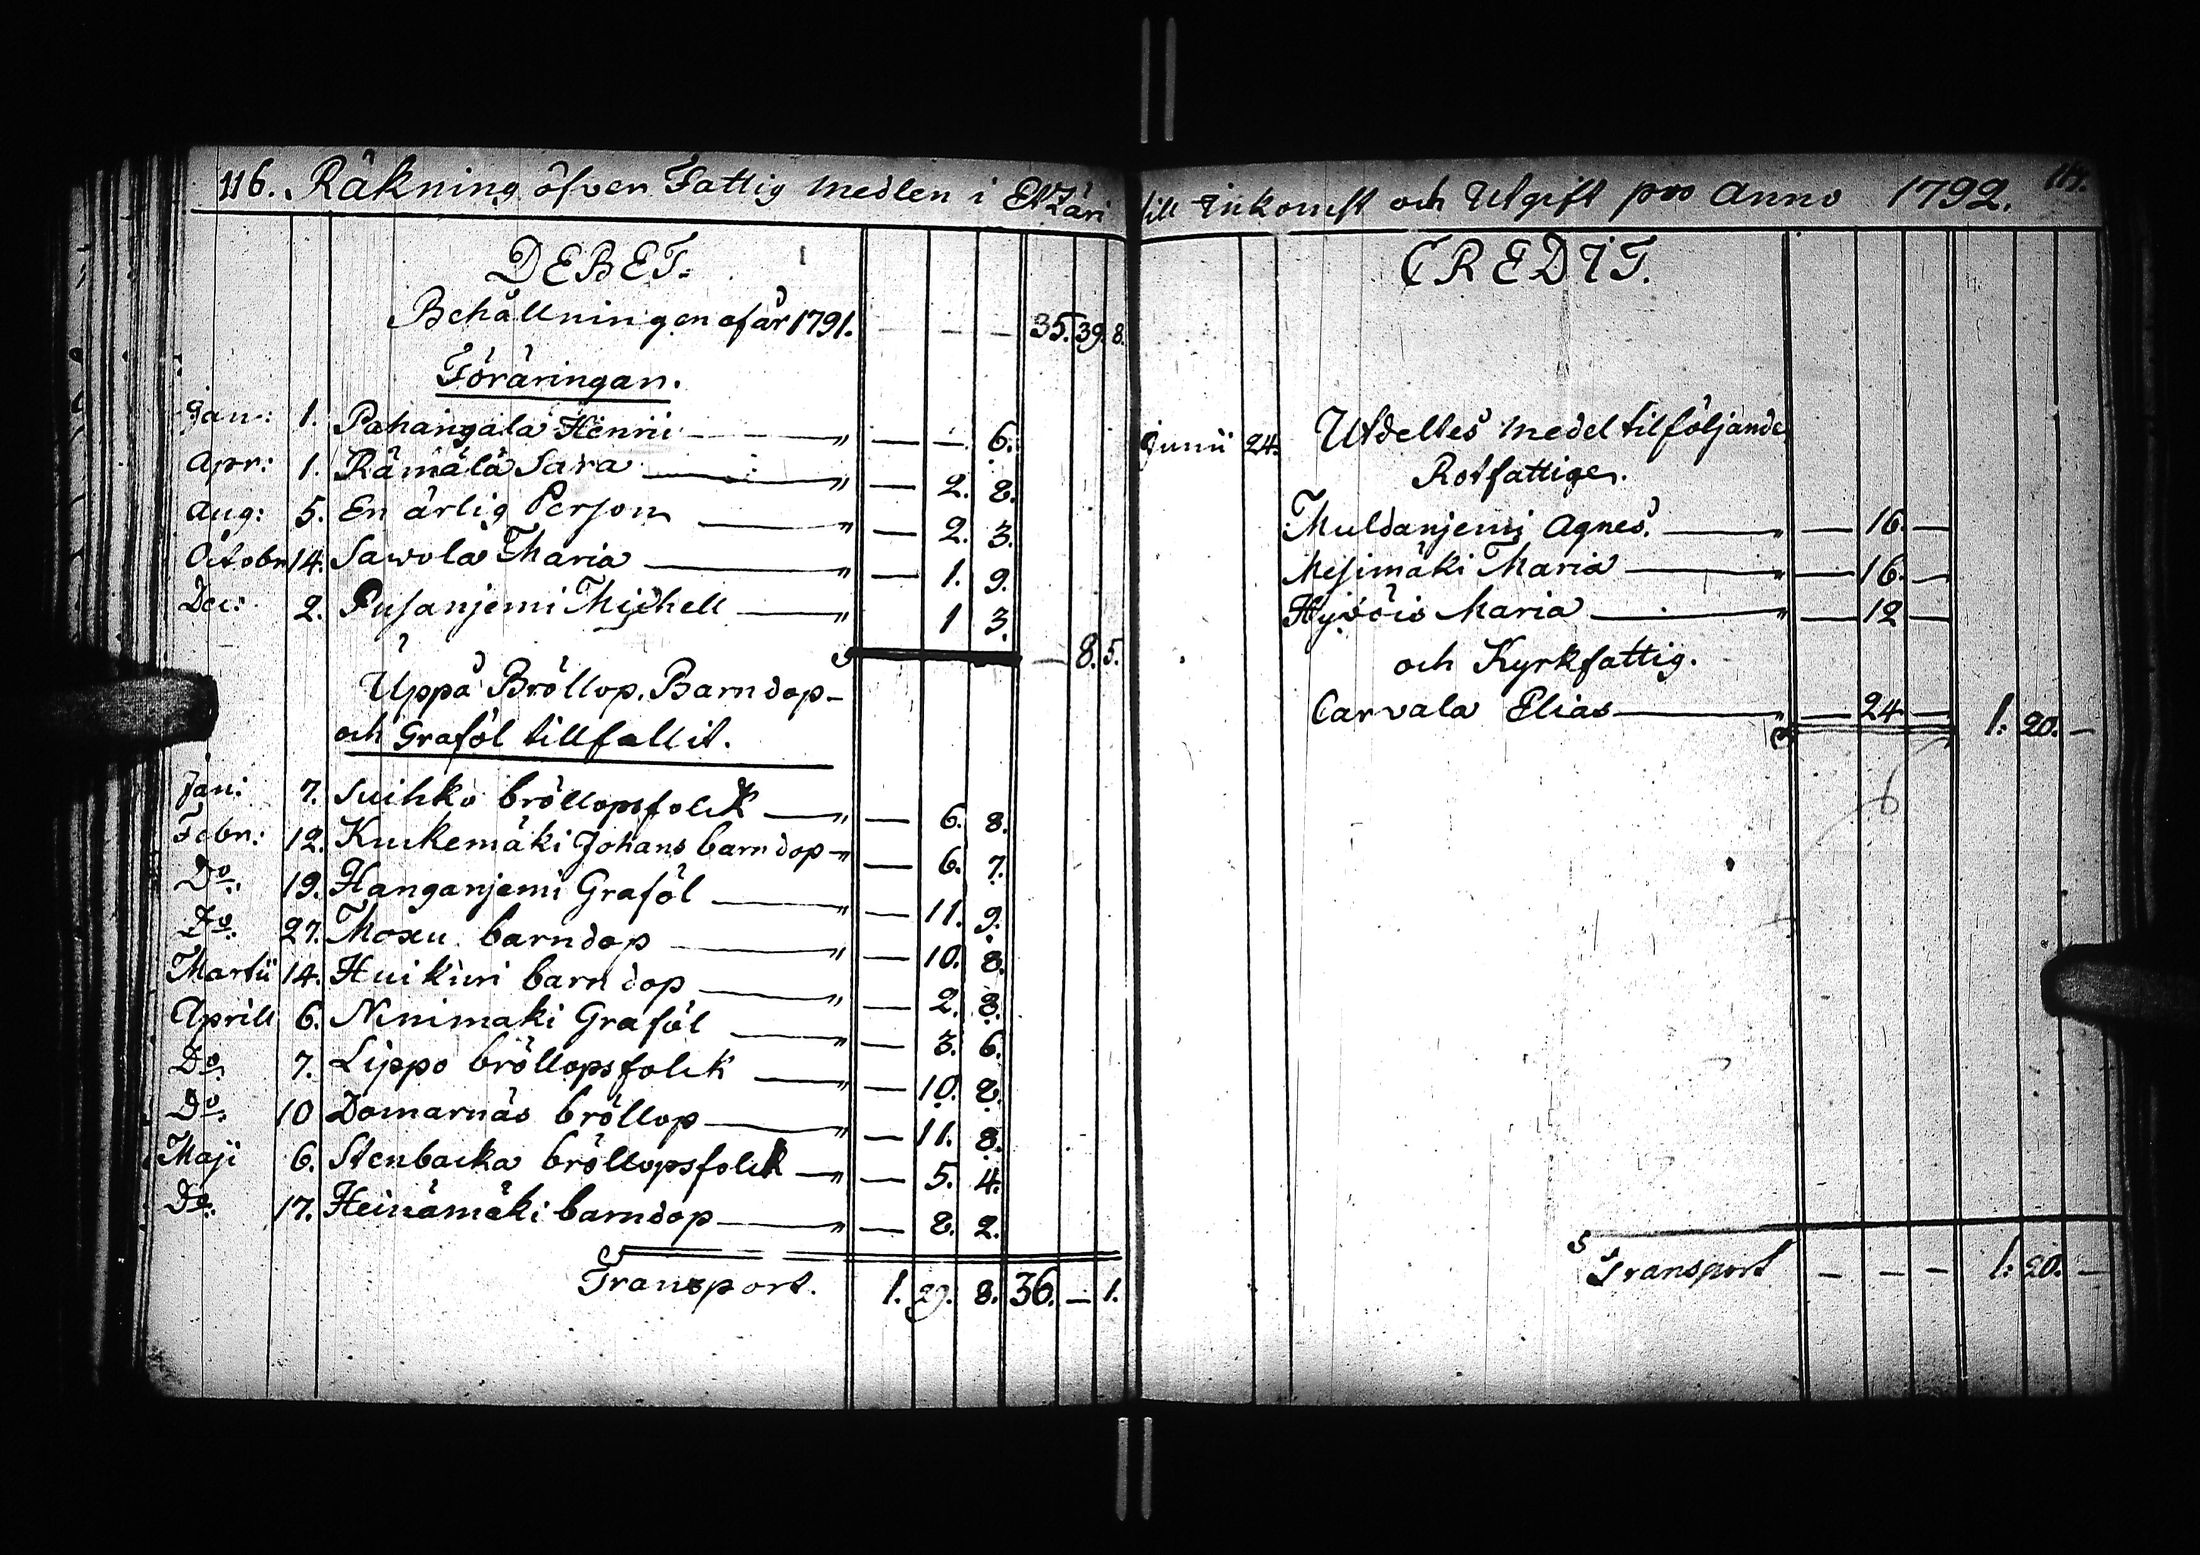 116. Räkning öfver Fattig medlen i Etzäri
DEBET.
Behållningen af år 1791. — — — 35. 39. 8.
Föräringar.
Jan: 1. Pahangala Henrii " — — 6.
Apr: 1. Rämälä Sara " — 2. 8.
Aug: 5. En ärlig Person " — 2. 3.
Octobr 14. Sawola Maria " — 1. 9.
Dec: 2. Pusanjemi Michell " 1 3.
— 8. 5.
Uppå Bröllop, Barndop-
och Graföl tillfallit.
Jan: 7. Suihko bröllopsfolck " — 6. 8.
Febr: 12. Kuckemäki Johans barndop " — 6. 7.
Do. 19. Hanganjemi Graföl " — 11. 9.
Do. 27. Moxu barndop " — 10. 8.
Martii 14. Huikuri barndop " — 2. 8.
Aprill 6. Ninimaki Graföl " — 3. 6.
Do. 7. Lippo bröllopsfolck " — 10. 8.
Do. 10 Domarnäs bröllop " — 11. 8.
Maji 6. Stenbacka bröllopsfolck " — 5. 4.
Do. 17. Heinämäki barndop " — 8. 2.
Transport. 1. 29. 8. 36. — 1.
till Inkomst och Utgift pro Anno 1792.
CREDIT.
Junii 24. Utdeltes medel til följande
Rotfattiga.
Muldanjemi Agnes. " — 16. —
Mesimäki Maria " — 16. —
Hyvöis Maria " — 12 —
och Kyrkfattig.
Carvala Elias " — 24 — 1. 20. —
Transport — — — 1. 20. —